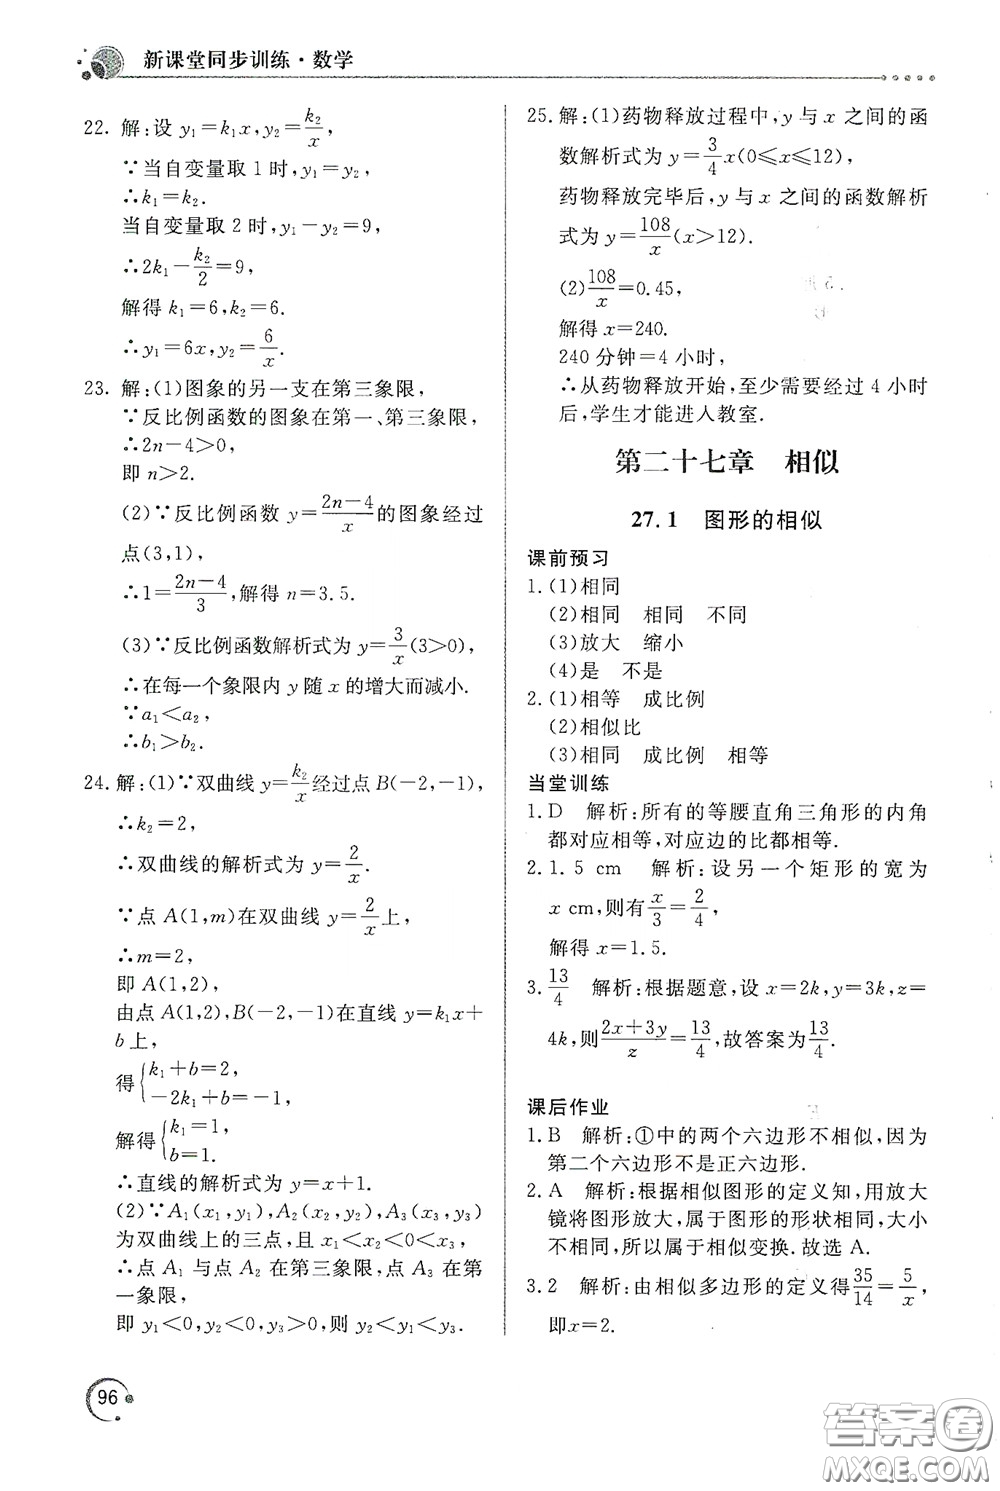 新课堂同步训练·数学
22. 解:设 y₁=k₁x,y₂=k₂/x,
∵当自变量取 1 时,y₁=y₂,
∴k₁=k₂.
当自变量取 2 时,y₁-y₂=9,
∴2k₁-k₂/2=9,
解得 k₁=6,k₂=6.
∴y₁=6x,y₂=6/x.
23. 解:(1)图象的另一支在第三象限,
∵反比例函数的图象在第一、第三象限,
∴2n-4>0,
即 n>2.
(2)∵反比例函数 y=(2n-4)/x的图象经过
点(3,1),
∴1=(2n-4)/3,解得 n=3.5.
(3)∵反比例函数解析式为 y=3/x(3>0),
∴在每一个象限内 y 随 x 的增大而减小.
∵a₁<a₂,
∴b₁>b₂.
24. 解:(1)∵双曲线 y=k₂/x经过点 B(-2,-1),
∴k₂=2,
∴双曲线的解析式为 y=2/x.
∵点 A(1,m)在双曲线 y=2/x上,
∴m=2,
即 A(1,2),
由点 A(1,2),B(-2,-1)在直线 y=k₁x+
b 上,
得{k₁+b=2,
-2k₁+b=-1,
解得{k₁=1,
b=1.
∴直线的解析式为 y=x+1.
(2)∵A₁(x₁,y₁),A₂(x₂,y₂),A₃(x₃,y₃)
为双曲线上的三点,且 x₁<x₂<0<x₃,
∴点 A₁ 与点 A₂ 在第三象限,点 A₃ 在第
一象限,
即 y₁<0,y₂<0,y₃>0,则 y₂<y₁<y₃.
25. 解:(1)药物释放过程中,y 与 x 之间的函
数解析式为 y=3/4x(0≤x≤12),
药物释放完毕后,y 与 x 之间的函数解析
式为 y=108/x(x>12).
(2)108/x=0.45,
解得 x=240.
240 分钟=4 小时,
∴从药物释放开始,至少需要经过 4 小时
后,学生才能进入教室.
第二十七章 相似
27.1 图形的相似
课前预习
1. (1)相同
(2)相同 相同 不同
(3)放大 缩小
(4)是 不是
2. (1)相等 成比例
(2)相似比
(3)相同 成比例 相等
当堂训练
1. D 解析:所有的等腰直角三角形的内角
都对应相等,对应边的比都相等.
2. 1.5 cm 解析:设另一个矩形的宽为
x cm,则有x/3=2/4,
解得 x=1.5.
3. 13/4 解析:根据题意,设 x=2k,y=3k,z=
4k,则(2x+3y)/z=13/4,故答案为13/4.
课后作业
1. B 解析:①中的两个六边形不相似,因为
第二个六边形不是正六边形.
2. A 解析:根据相似图形的定义知,用放大
镜将图形放大,属于图形的形状相同,大小
不相同,所以属于相似变换.故选 A.
3. 2 解析:由相似多边形的定义得35/14=5/x,
即x=2.
96
答案卷
MXQE.COM